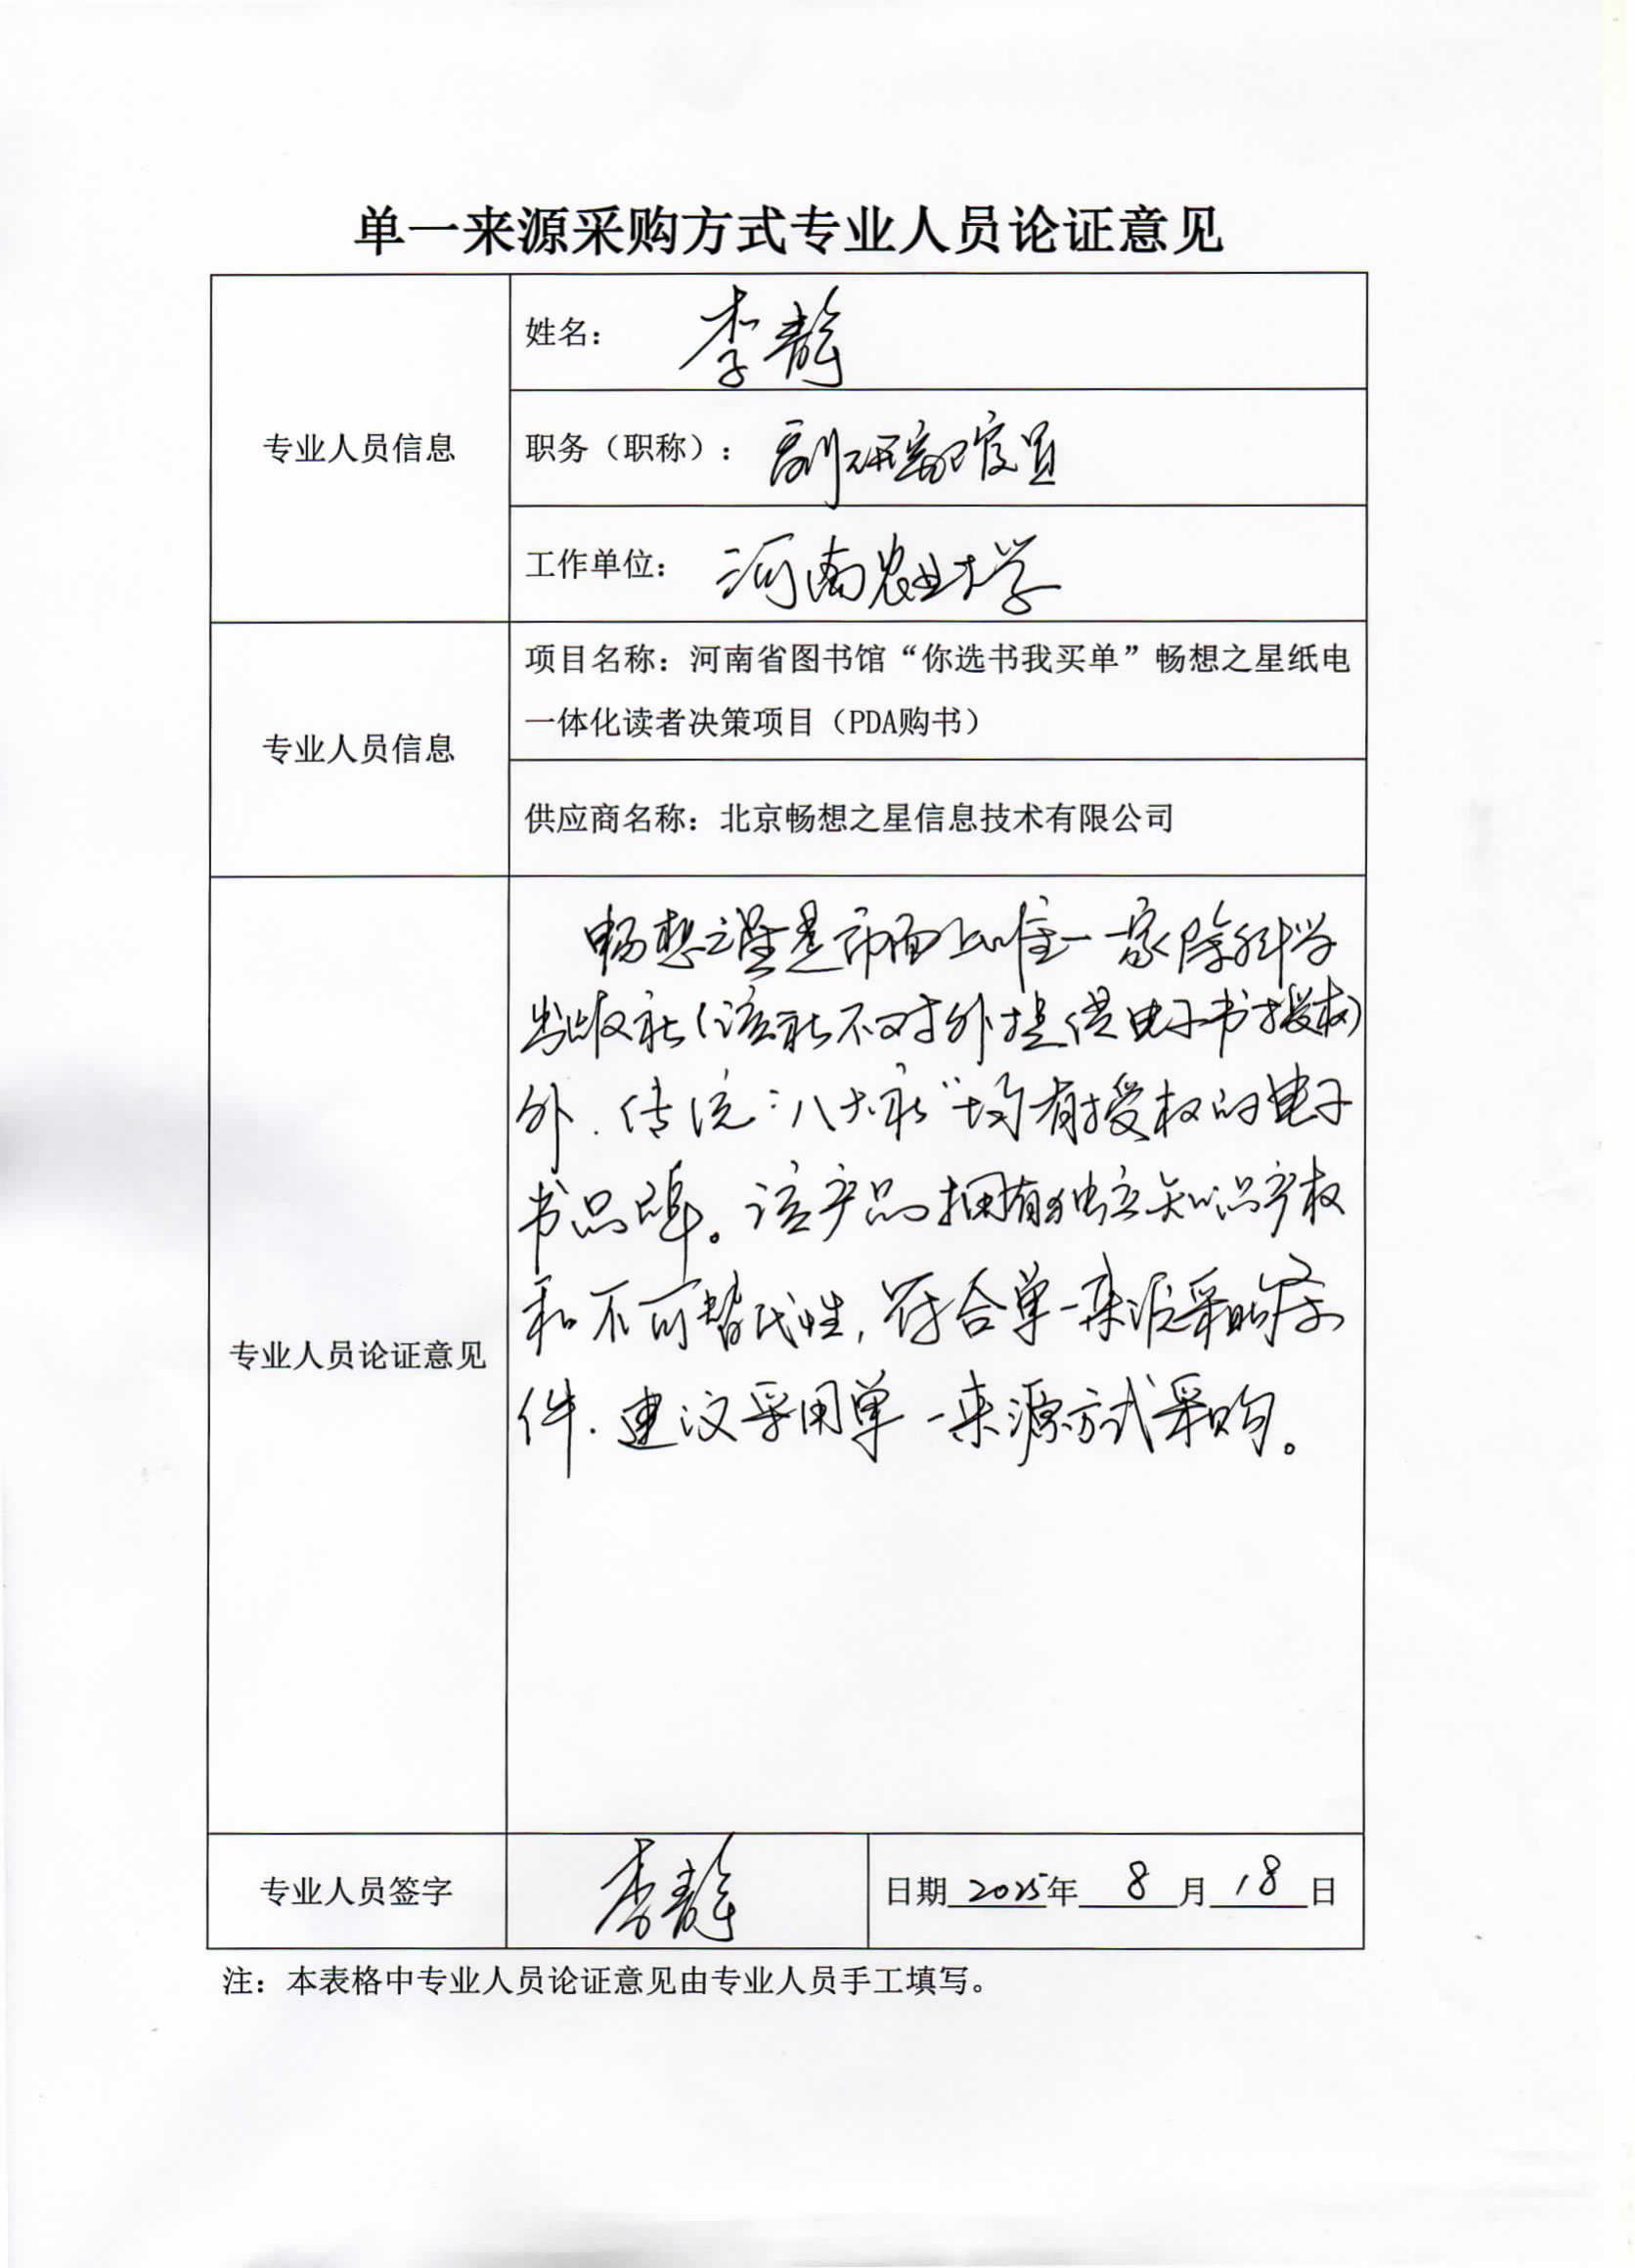 单一来源采购方式专业人员论证意见
专业人员信息
姓名： 李静
职务（职称）： 副研究馆员
工作单位： 河南农业大学
专业人员信息
项目名称：河南省图书馆“你选书我买单”畅想之星纸电
一体化读者决策项目（PDA购书）
供应商名称：北京畅想之星信息技术有限公司
专业人员论证意见
畅想之星是市面上唯一一家除科学
出版社（该社不对外提供电子书授权）
外，传统“八大社”均有授权的电子
书品牌。该产品拥有独立知识产权
和不可替代性，符合单一来源采购条
件，建议采用单一来源方式采购。
专业人员签字
李静
日期 2025年 8 月 18 日
注：本表格中专业人员论证意见由专业人员手工填写。